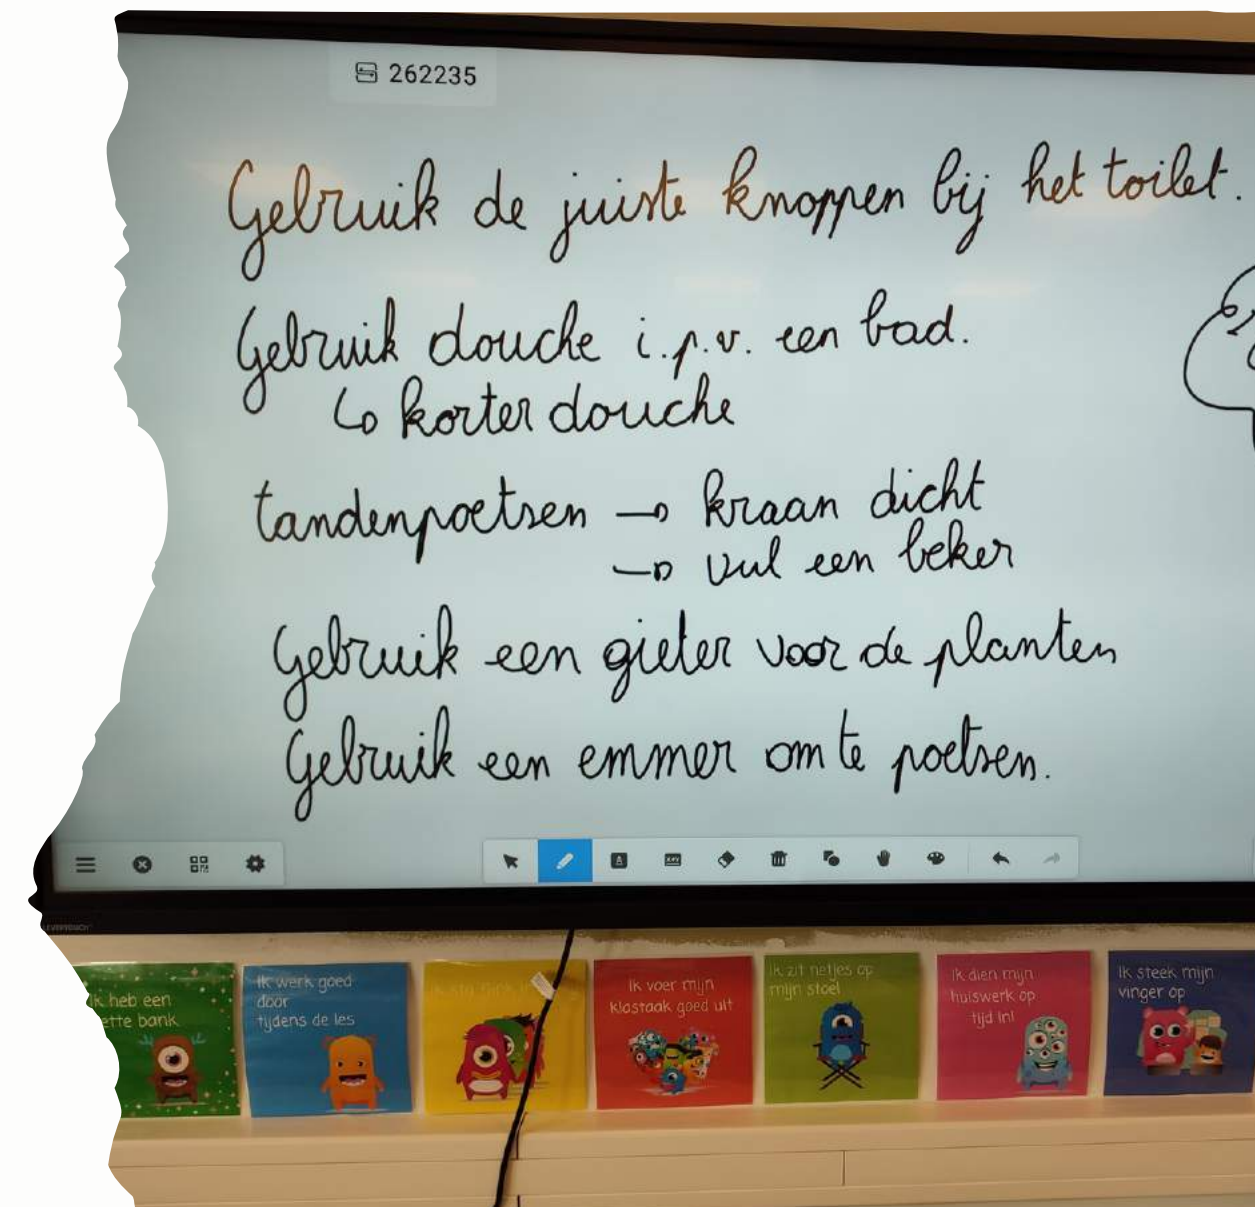 262235
Gebruik de juiste knoppen bij het toilet.
Gebruik douche i.p.v. een bad.
↳ korter douche
tandenpoetsen → kraan dicht
→ vul een beker
Gebruik een gieter voor de planten
Gebruik een emmer om te poetsen.
Ik heb een
nette bank
Ik werk goed
door
tijdens de les
Ik voer mijn
klastaak goed uit
Ik zit netjes op
mijn stoel
Ik dien mijn
huiswerk op
tijd in!
Ik steek mijn
vinger op